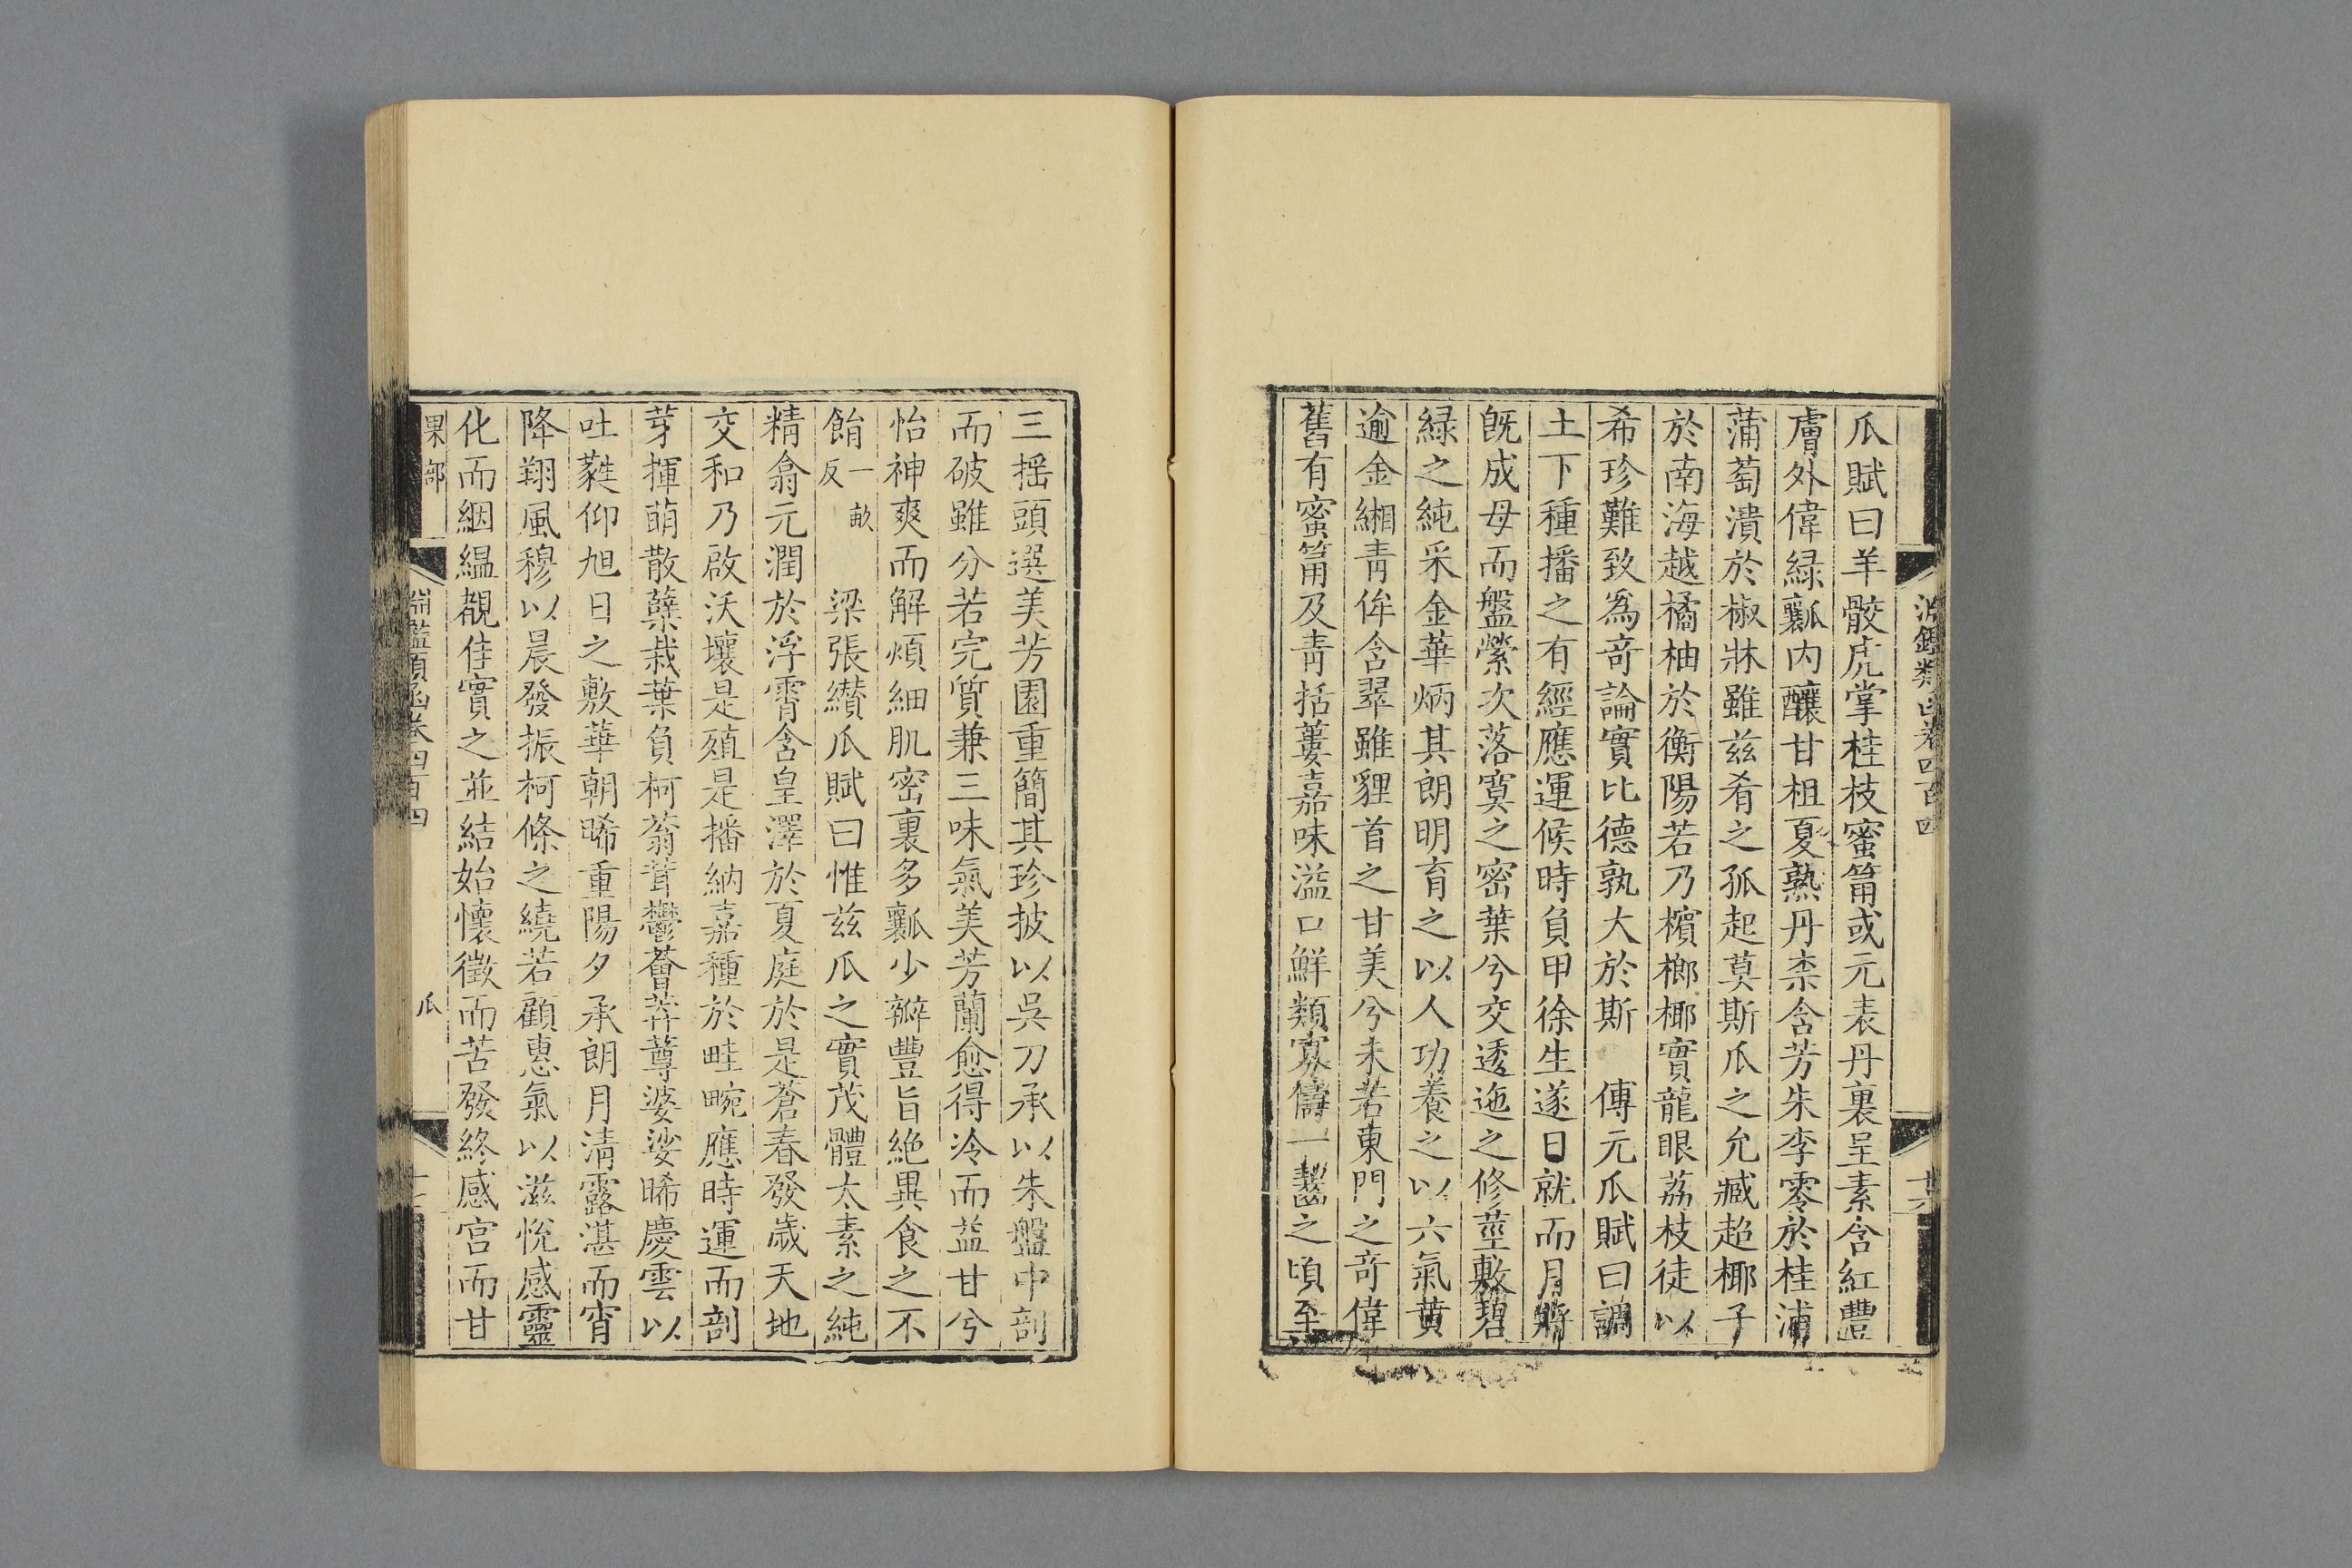 瓜賦曰羊骹虎掌桂枝蜜筩或元表丹裏呈素含紅豐
膚外偉緑瓤内釀甘柤夏熟丹柰含芳朱李零於桂浦
蒲萄潰於椒牀雖兹肴之孤起莫斯瓜之允臧超椰子
於南海越橘柚於衡陽若乃檳榔椰實龍眼荔枝徒以
希珍難致爲奇論實比德孰大於斯　傅元瓜賦曰調
土下種播之有經應運候時負甲徐生遂日就而月將
旣成母而盤縈次落寞之密葉兮交逶迤之修莖敷碧
緑之純采金華炳其朗明育之以人功養之以六氣黄
逾金緗青侔含翠雖貍首之甘美兮未若東門之奇偉
舊有蜜筩及青栝蔞嘉味溢口鮮類寡儔一齧之頃至
三摇頭選美芳園重簡其珍披以吳刀承以朱盤中剖
而破雖分若完質兼三味氣美芳蘭愈得冷而益甘兮
怡神爽而解煩細肌密裏多瓤少瓣豐旨絶異食之不
䬼一畝反　梁張纘瓜賦曰惟兹瓜之實茂體太素之純
精翕元潤於浮霄含皇澤於夏庭於是蒼春發歲天地
交和乃啟沃壤是殖是播納嘉種於畦畹應時運而剖
芽揮萌散蘖栽葉負柯蓊茸鬱薈莽蓴婆娑晞慶雲以
吐蕤仰旭日之敷華朝晞重陽夕承朗月清露湛而宵
降翔風穆以晨發振柯條之繞若顧惠氣以滋悅感靈
化而絪緼覩佳實之並結始懷徵而苦發終感宫而甘
果部
淵鑑類函卷四百四
瓜